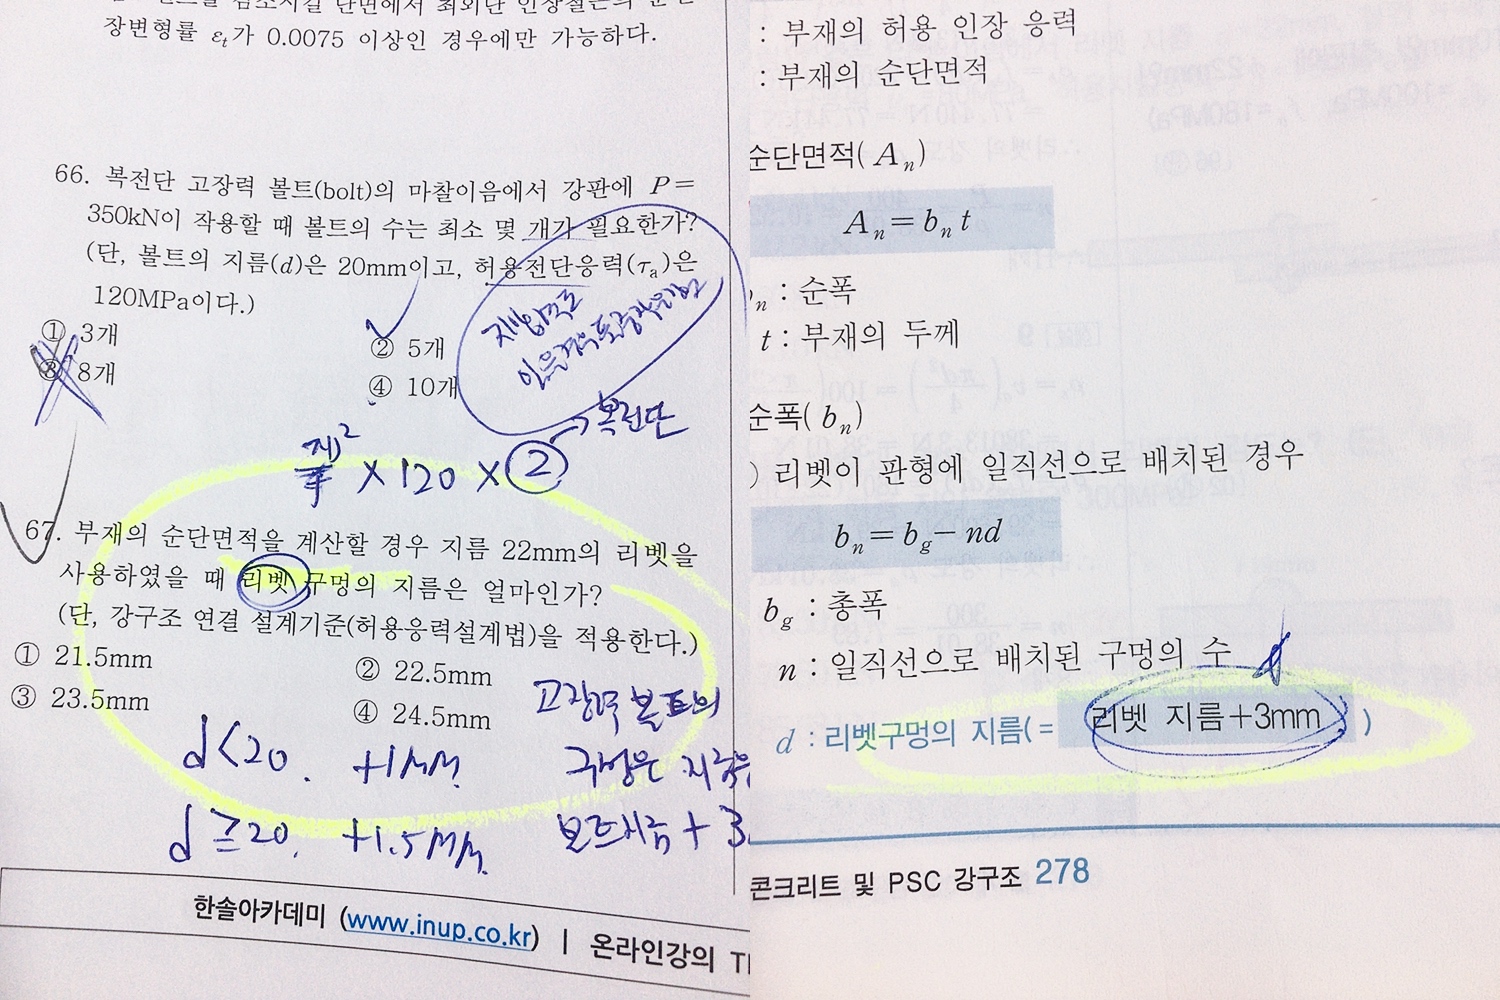 장변형률 εt가 0.0075 이상인 경우에만 가능하다.
66. 복전단 고장력 볼트(bolt)의 마찰이음에서 강판에 P=
350kN이 작용할 때 볼트의 수는 최소 몇 개가 필요한가?
(단, 볼트의 지름(d)은 20mm이고, 허용전단응력(τa)은
120MPa이다.)
① 3개
② 5개
③ 8개
④ 10개
복전단
× 120 × 2
67. 부재의 순단면적을 계산할 경우 지름 22mm의 리벳을
사용하였을 때 리벳 구멍의 지름은 얼마인가?
(단, 강구조 연결 설계기준(허용응력설계법)을 적용한다.)
① 21.5mm
② 22.5mm
③ 23.5mm
④ 24.5mm
고장력 볼트의
d<20. +1mm
구멍은
d≥20. +1.5mm
볼트지름 + 3
한솔아카데미 (www.inup.co.kr) | 온라인강의
: 부재의 허용 인장 응력
: 부재의 순단면적
순단면적(An)
An=bn t
n : 순폭
t : 부재의 두께
순폭(bn)
) 리벳이 판형에 일직선으로 배치된 경우
bn=bg-nd
bg : 총폭
n : 일직선으로 배치된 구멍의 수
d : 리벳구멍의 지름(= 리벳 지름+3mm )
콘크리트 및 PSC 강구조 278